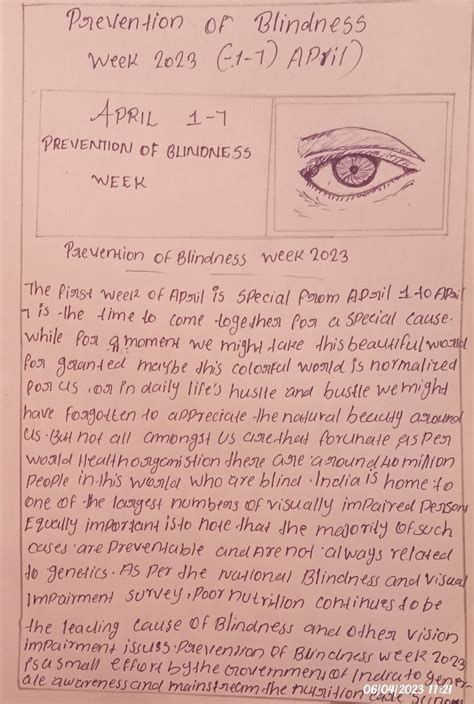 Prevention of Blindness
Week 2023 (-1-7) April)
APRIL 1-7
PREVENTION OF BLINDNESS
WEEK
Prevention of Blindness week 2023
The first week of April is special from April 1 to April
7 is the time to come together for a special cause.
while for a moment we might take this beautiful world
for granted maybe this colorful world is normalized
for us, or in daily life's hustle and bustle we might
have forgotten to appreciate the natural beauty around
us. But not all amongst us are that forunate as per
world Health organistion there are around 40 million
people in this world who are blind. India is home to
one of the largest numbers of visually impaired persons
Equally important is to note that the majority of such
cases are preventable and are not always related
to genetics. As per the national Blindness and visual
impairment survey, Poor nutrition continues to be
the leading cause of Blindness and other vision
impairment issues. Prevention of Blindness week 2023
is a small effort by the Government of India to gener-
ate awareness and mainstream the nutrition
06/04/2023 11:21